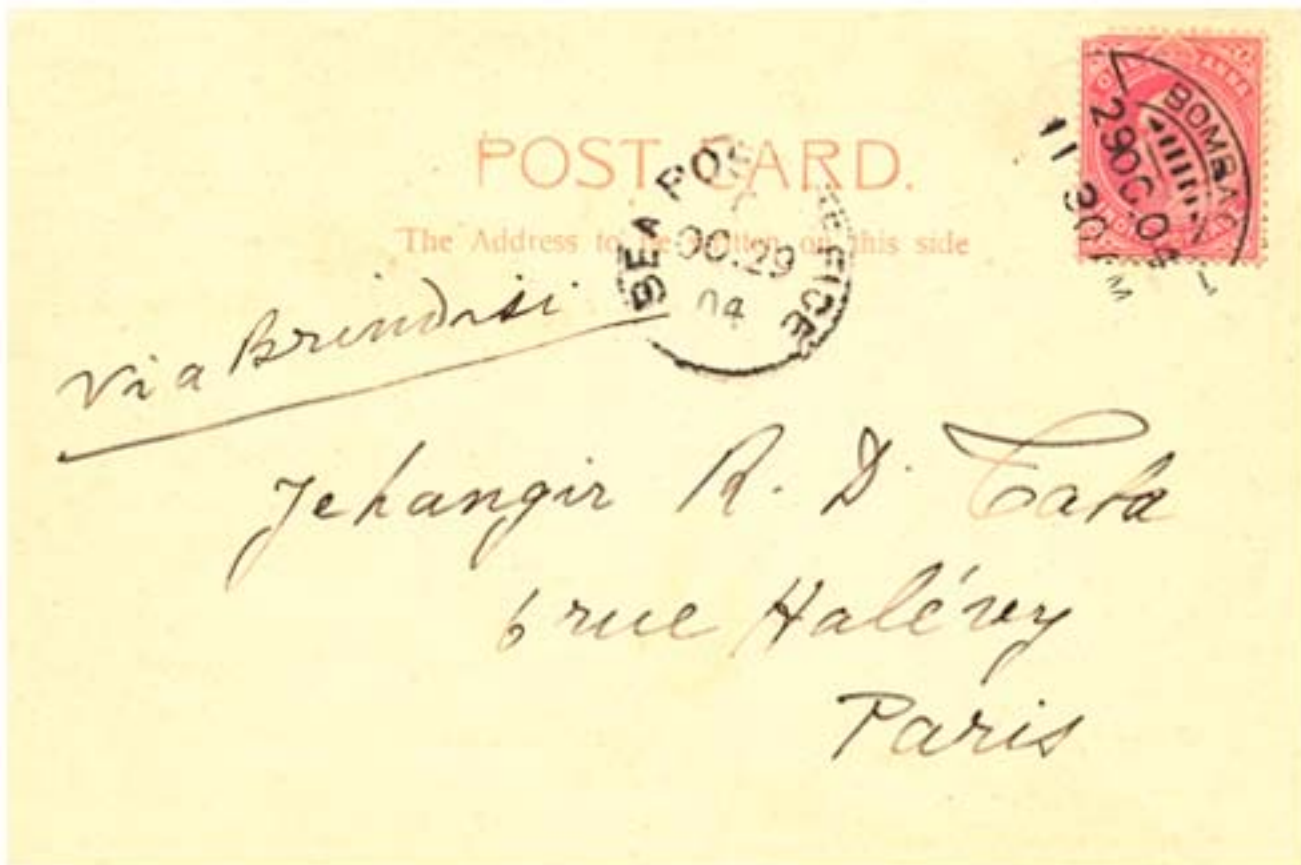 POST CARD.
The Address to be written on this side
SEA POST OFFICE
OC.29
04
ONE ANNA
BOMBAY
29 OC.04
11 30 AM
Via Brindisi
Jehangir R. D. Tata
6 rue Halévy
Paris